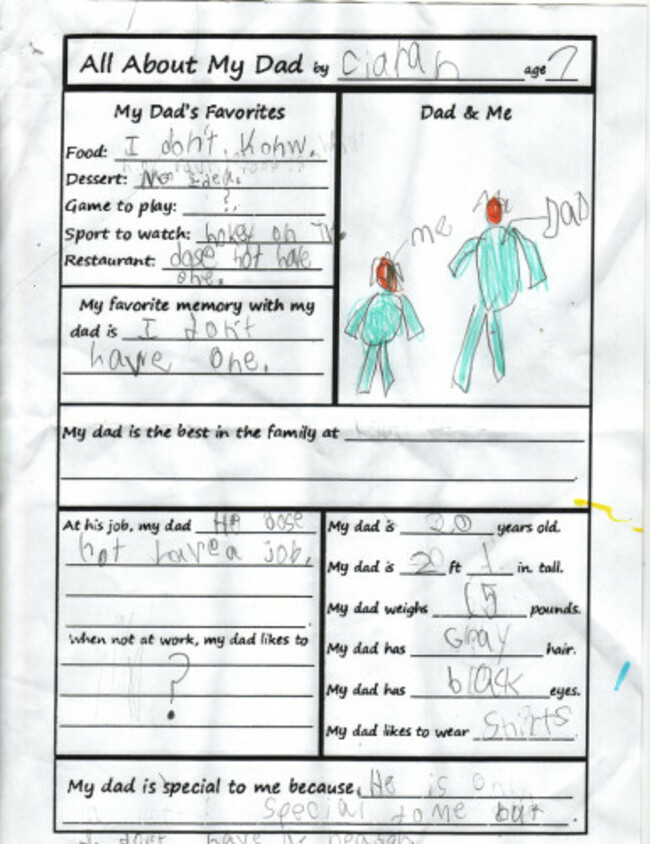 All About My Dad by Ciarah age 7
My Dad's Favorites
Food: I don't. Konw.
Dessert: No Idea.
Game to play: ?
Sport to watch: hokey on TV.
Restaurant: dose not have
one.
Dad & Me
me
Dad
My favorite memory with my
dad is I don't
have one.
My dad is the best in the family at
At his job, my dad He dose
not have a job.
When not at work, my dad likes to
?
My dad is 20 years old.
My dad is 2 ft 1 in. tall.
My dad weighs 15 pounds.
My dad has Gray hair.
My dad has black eyes.
My dad likes to wear Shirts.
My dad is special to me because He is only
special to me but
I don't have a reason